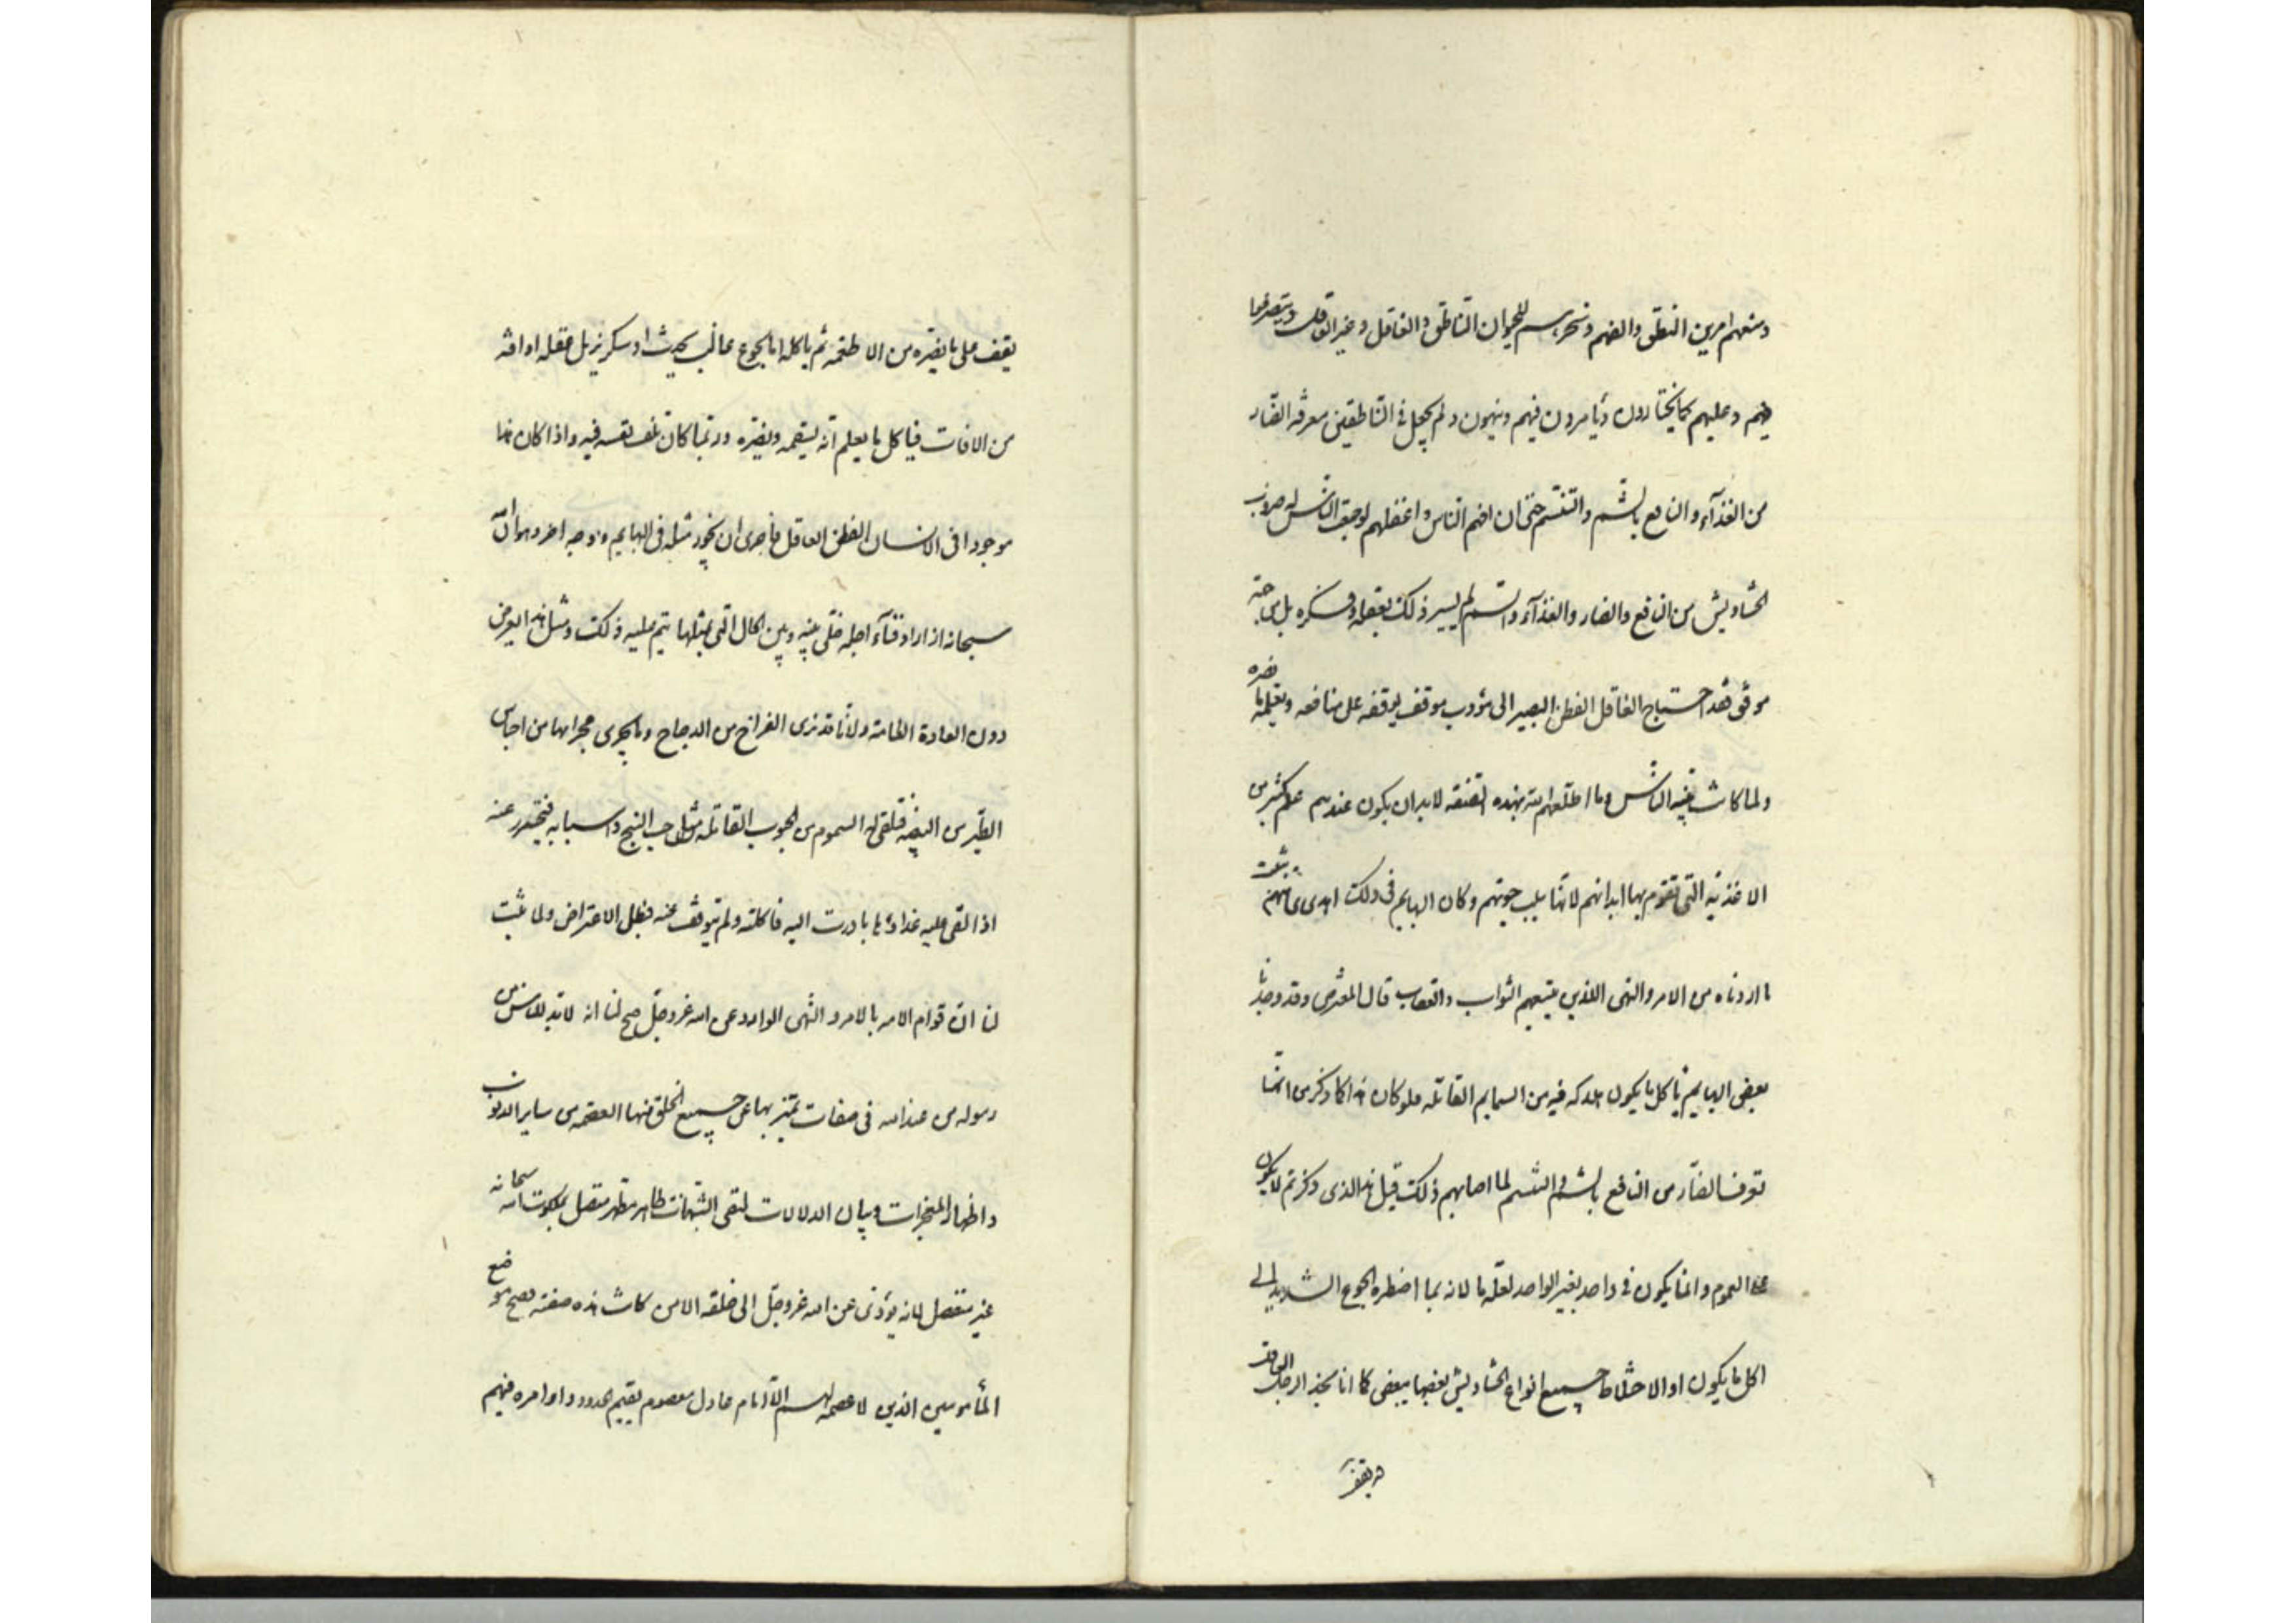 ومنعهم امرين النطق والفهم وتنحرسم للحيوان الناطق والغافل وغير العاقلة ويتصرفوا
فيهم وعليهم كما يختارون ويأمرون فيهم وينهون ولم يجعل في الناطقين معرفه الضار
من الغذآء والنافع بالشم والتنسم حتى ان افهم الناس واعقلهم لوجمعت الناس له ضروب
الحشاويش من النافع والضار والغذآء والسم لم يسير ذلك بعقله وفكره بل من جهة
موقف فقد احتياج العاقل الفطن البصير الى مؤدب موقف يوقفه على منافعه ويعلمه ما يضره
ولما كانت بنية الناس وما اطلعهم لله بهذه الصفة لابد ان يكون عندهم علم كثير من
الاغذية التي تقوم بها ابدانهم لانها سبب حيوتهم وكان البهايم في ذلك اهدى منهم ثبت
ما اردناه من الامر والنهى اللذين يتبعهم الثواب والعقاب قال المعترض وقد وجدنا
بعض البهايم يأكل ما يكون هلاكه فيه من السمايم القاتله فلو كان هذا كما ذكر من انها
تعرف الضار من النافع بالشم والتنسم لما اصابهم ذلك قيل هذا الذي ذكرتم لا يكون
على العموم وانما يكون في واحد بغير الواحد لعلة ما لانه بما اضطره الجوع الشديد الى
اكل ما يكون او الاختلاط جميع انواع الحشاويش بعضها ببعض كما انا نجد الرجل العاقل
قد يقف
يقف على ما يضره من الاطعمه ثم ياكله اما لجوع غالب يحدث او سكر يزيل عقله او افة
من الافات فياكل ما يعلم انه يسقمه ويضره وربما كان تلف نفسه فيه واذا كان هذا
موجودا في الانسان الفطن العاقل فاحرى ان يجوز مثله في البهايم ووجه اخر وهو ان الله
سبحانه اذا اراد فنآء اجله خلى بينه وبين الحال التي بمثلها يتم عليه ذلك ومثل هذا يعرض
دون العادة العامة ولانا قد نرى الفراخ من الدجاج وما يجري مجراها من اجناس
الطير من البيضة فتلقى له السموم من الحبوب القاتله مثل حب البنج واسبابه فتحذر عنه
اذا القى عليه غذاؤها بادرت اليه فاكلته ولم تتوقف عنه فبطل الاعتراض ولما ثبت
لنا ان قوام الامه بالامر والنهى الوارد عن الله عز وجل صح لنا انه لابد للناس من
رسول من عند الله في صفات تميز بها عن جميع الخلق منها العصمه من ساير الذنوب
واظهار المعجزات وبيان الدلالات لنفى الشبهات طاهر مطهر متصل بملكوت الله سبحانه
غير منفصل لانه يؤدي عن الله عز وجل الى خلقه الا من كانت هذه صفته فصح موضع
المأمومين الذين لا عصمة لهم الا امام عادل معصوم يقيم حدود واوامره فيهم